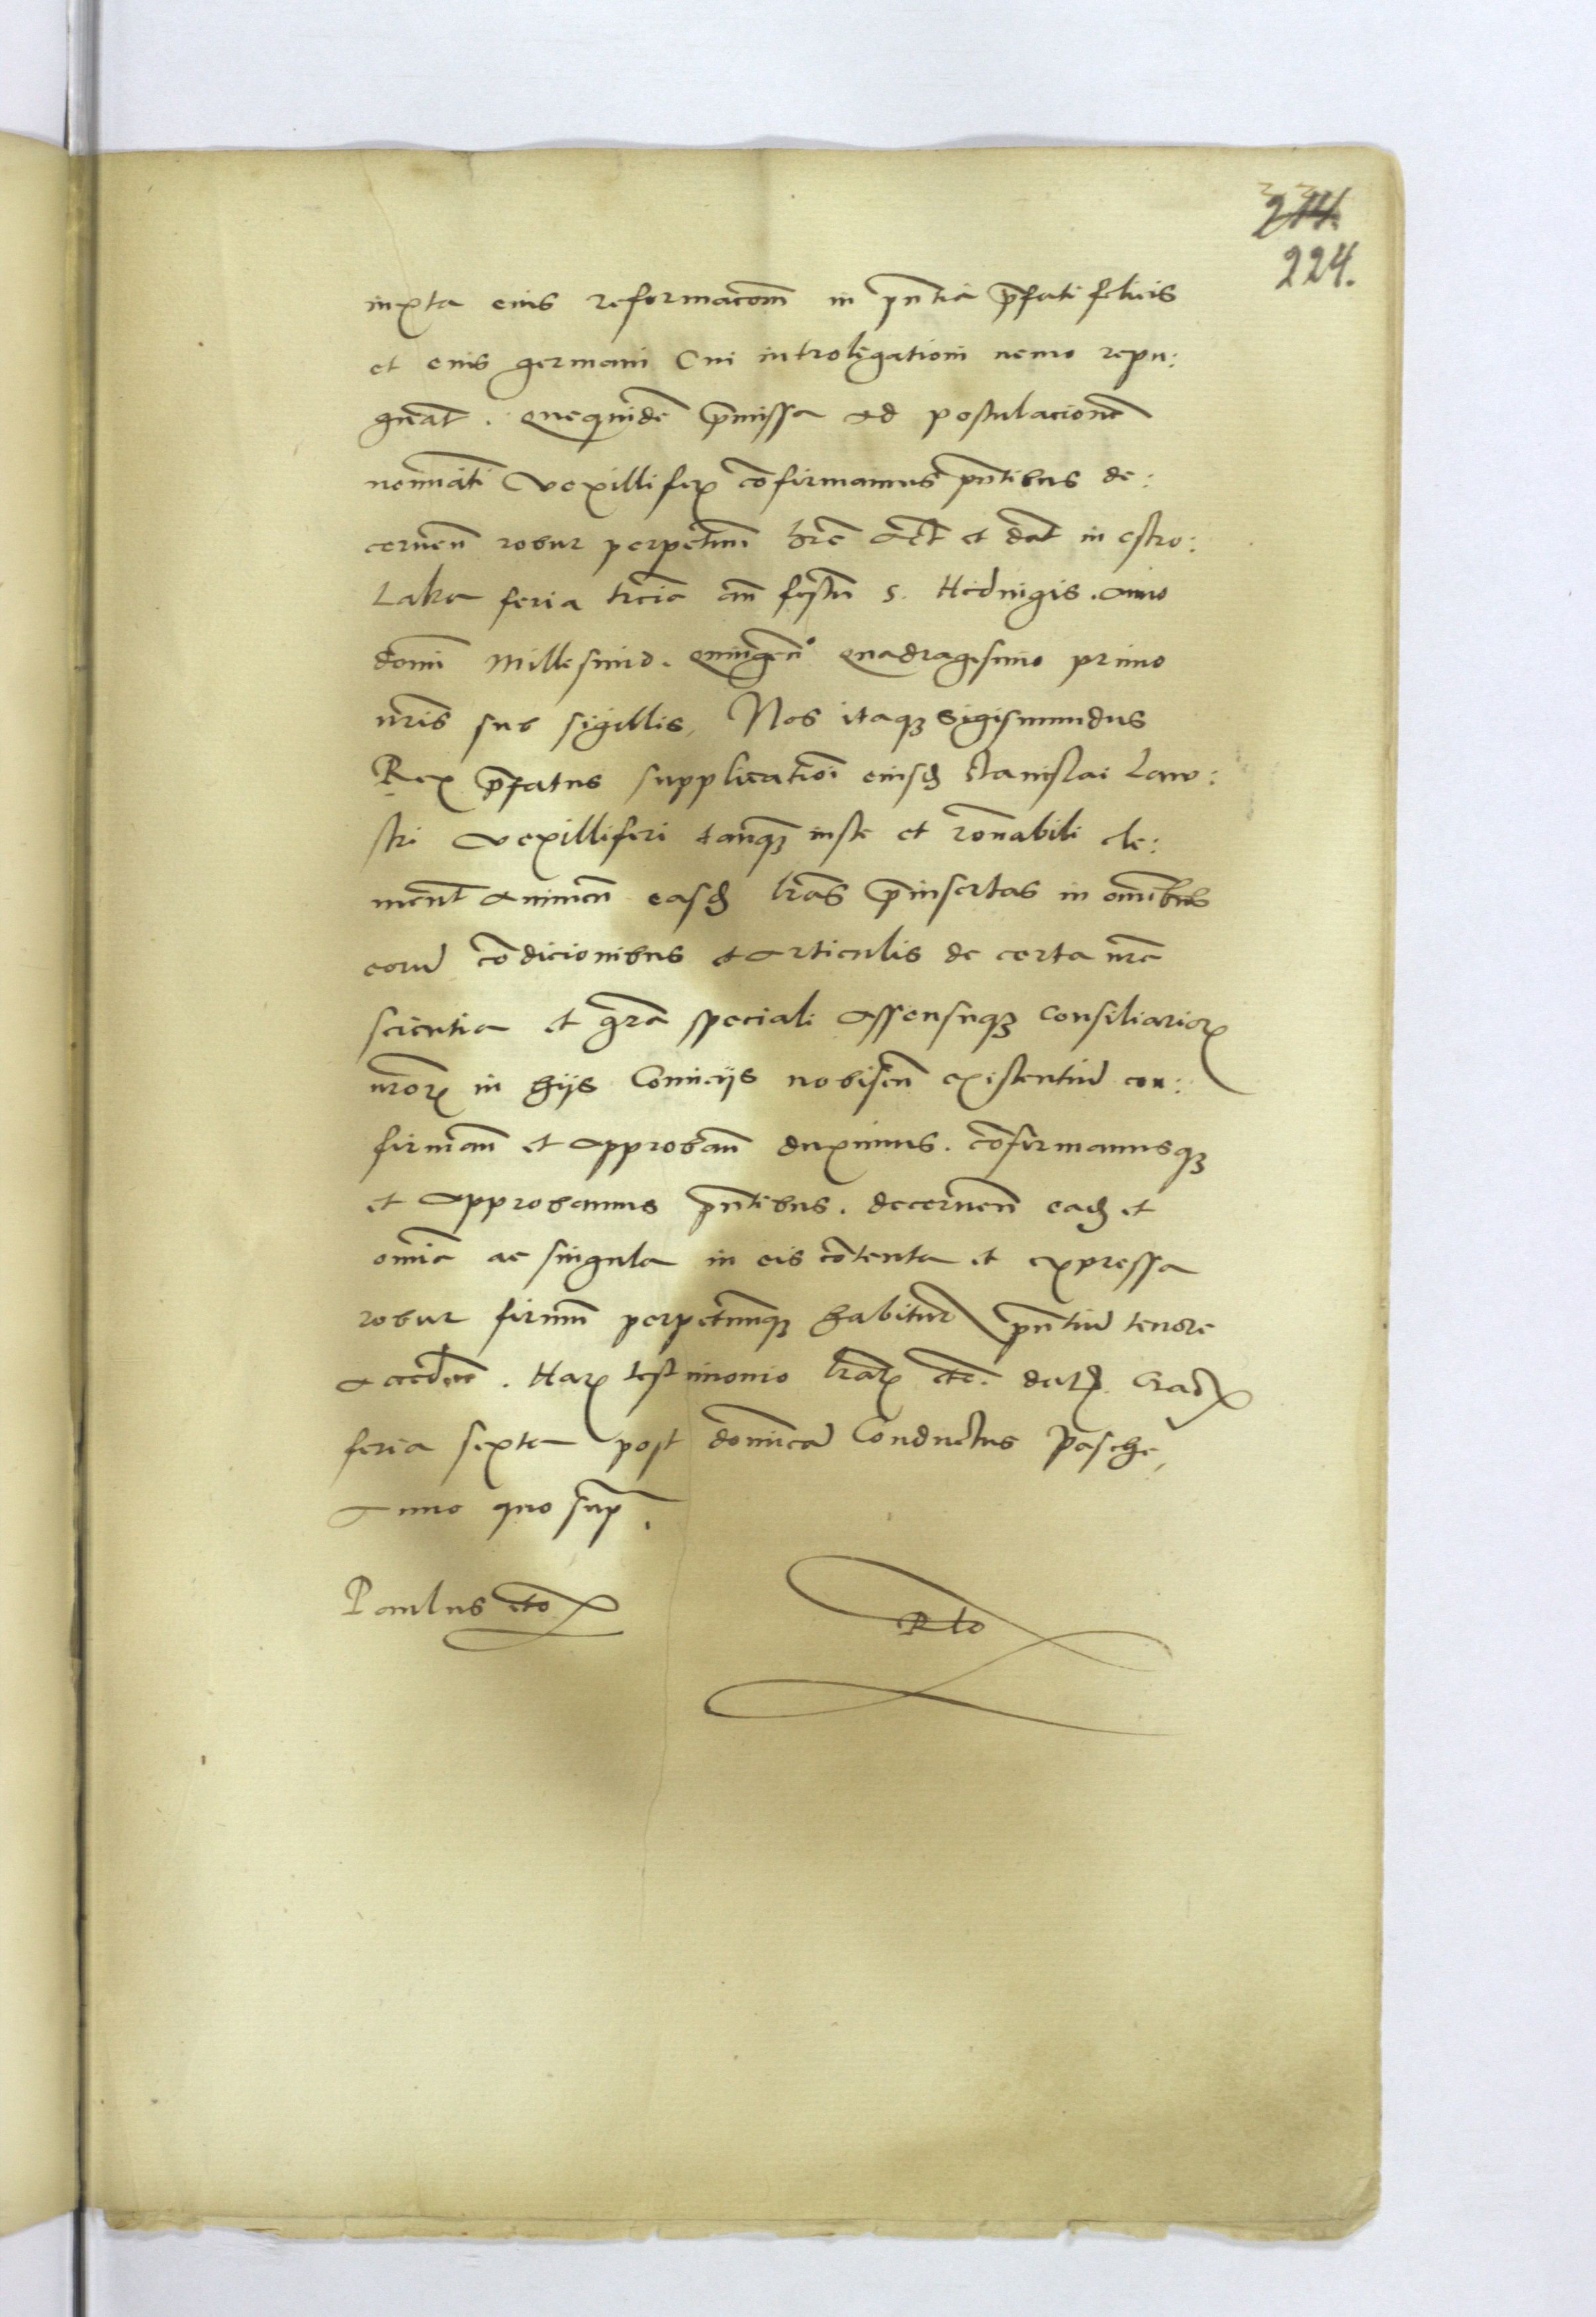 214.
224.
iuxta eius reformacom in pntia pfati felicis
et eius germani Cui introligationi nemo repu:
gneat. Quequidē pmissa ad postulacionē
nominati vexilliferi cōfirmamus pntibus de:
cernen robur perpetuum hre Act et dat in ostro:
laka feria tercia an festu S. Hedwigis. anno
domi Millesimo. quingen° quadragesimo primo
nris sub sigillis, Nos itaq3 Sigismundus
Rex pfatus supplicationi eiusd Stanislai Law:
ski vexilliferi tanq3 iuste et ronabili cle:
ment annuen easd lras pinsertas in omibus
eoru cōdicionibus et articulis de certa nra
scientia et gra speciali assensuq3 Consiliarior
nror in hijs Comicijs nobiscu existentiu con:
firman et approban duximus. cōfirmamusq3
et approbamus pntibus. decernen ead et
omia ac singula in eis cōtenta et expressa
robur firmu perpetuumq3 habitur pntiu tenore
acceden. Har testimonio lrar etc. dat. Crac
feria sexta post dominica Conductus Pasche,
Anno quo sup.
Paulus etc